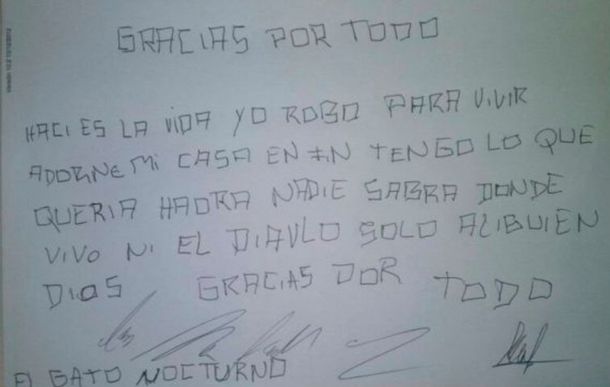 GRACIAS POR TODO
HACI ES LA VIDA YO ROBO PARA VIVIR
ADORNE MI CASA EN FIN TENGO LO QUE
QUERIA HAORA NADIE SABRA DONDE
VIVO NI EL DIAVLO SOLO
DIOS GRACIAS POR TODO
EL GATO NOCTURNO